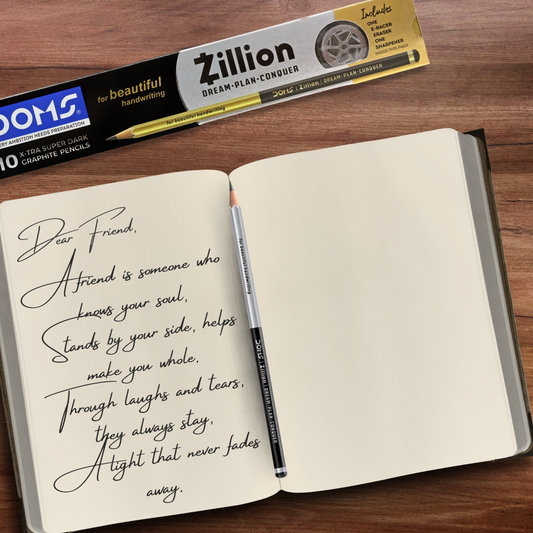 Includes
ONE
E-RACER
ERASER
ONE
SHARPENER
INSIDE THIS PACK
Zillion
DREAM-PLAN-CONQUER
for beautiful
handwriting
DOMS
AMBITION NEEDS PREPARATION
10 X-TRA SUPER DARK
GRAPHITE PENCILS
for beautiful handwriting DOMS Zillion DREAM-PLAN-CONQUER
Dear Friend,
A friend is someone who
knows your soul,
Stands by your side, helps
make you whole.
Through laughs and tears,
they always stay,
A light that never fades
away.
for beautiful handwriting
DOMS Zillion DREAM PLAN CONQUER